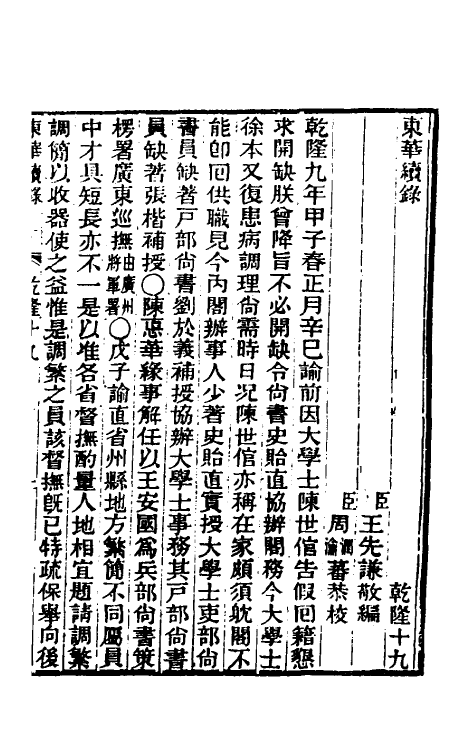 東華續錄 乾隆十九
臣王先謙敬編
臣周潤蕃瀹蕃恭校
乾隆九年甲子春正月辛巳諭前因大學士陳世倌告假回籍懇
求開缺朕曾降旨不必開缺令尚書史貽直協辦閣務今大學士
徐本又復患病調理尚需時日況陳世倌亦稱在家頗須躭閣不
能卽回供職見今內閣辦事人少著史貽直實授大學士吏部尚
書員缺著戸部尚書劉於義補授協辦大學士事務其戸部尚書
員缺著張楷補授〇陳悳華緣事解任以王安國爲兵部尚書策
楞署廣東巡撫由廣州將軍署〇戊子諭直省州縣地方繁簡不同屬員
中才具短長亦不一是以准各省督撫酌量人地相宜題請調繁
調簡以收器使之益惟是調繁之員該督撫旣已特疏保舉向後
東華續錄 乾隆十九